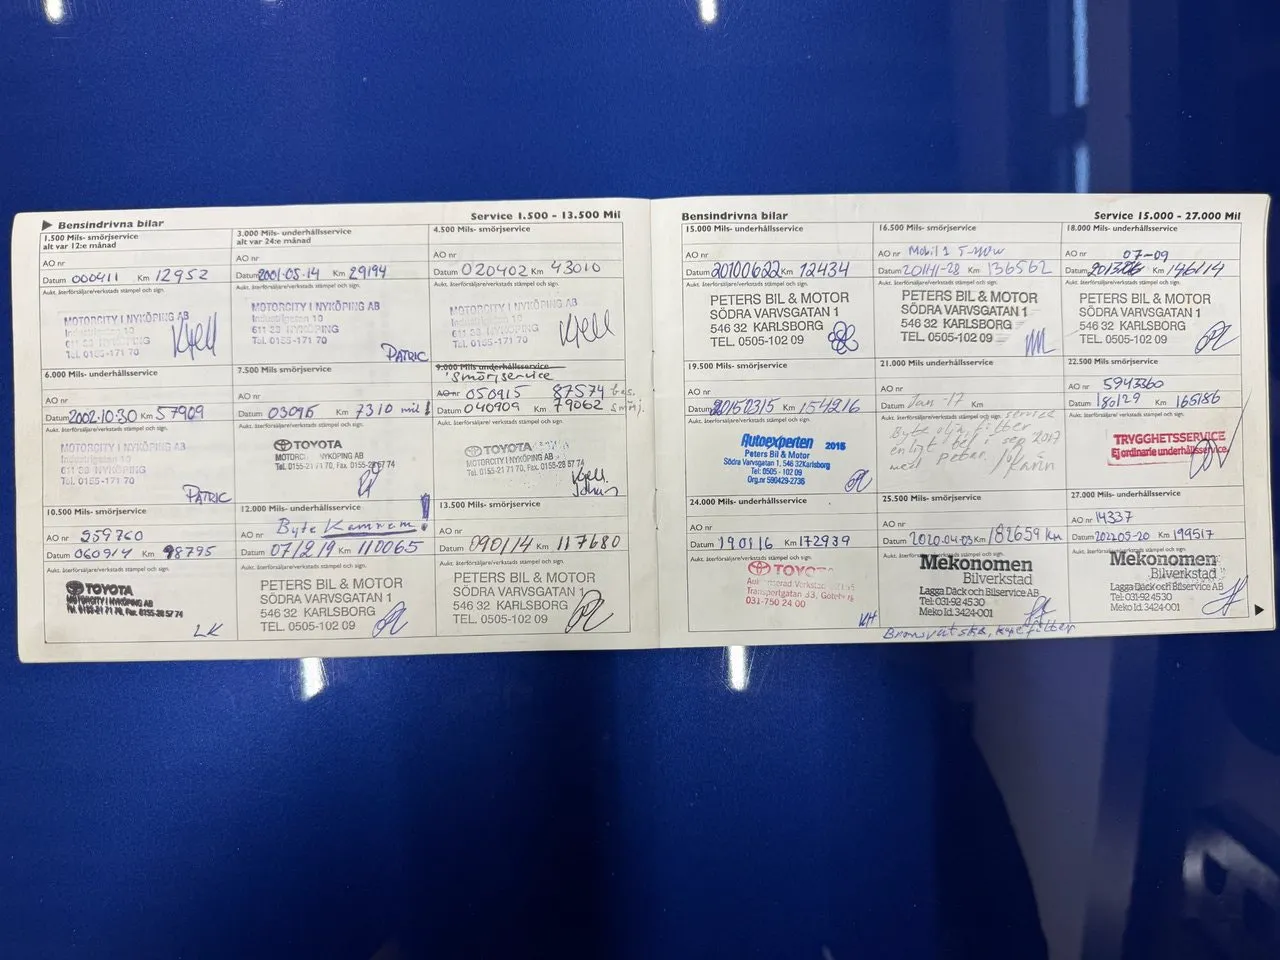 Bensindrivna bilar
Service 1.500 - 13.500 Mil
1.500 Mils- smörjservice
alt var 12:e månad
AO nr
Datum 000411 Km 12952
Aukt. återförsäljare/verkstads stämpel och sign.
MOTORCITY I NYKÖPING AB
Industrigatan 10
611 33 NYKÖPING
Tel. 0155-171 70
Kjell
3.000 Mils- underhållsservice
alt var 24:e månad
AO nr
Datum 2001.05.14 Km 29194
Aukt. återförsäljare/verkstads stämpel och sign.
MOTORCITY I NYKÖPING AB
Industrigatan 10
611 33 NYKÖPING
Tel. 0155-171 70
PATRIC
4.500 Mils- smörjservice
AO nr
Datum 020402 Km 43010
Aukt. återförsäljare/verkstads stämpel och sign.
MOTORCITY I NYKÖPING AB
Industrigatan 10
611 33 NYKÖPING
Tel. 0155-171 70
Kjell
6.000 Mils- underhållsservice
AO nr
Datum 2002.10.30 Km 57909
Aukt. återförsäljare/verkstads stämpel och sign.
MOTORCITY I NYKÖPING AB
Industrigatan 10
611 33 NYKÖPING
Tel. 0155-171 70
PATRIC
7.500 Mils smörjservice
AO nr
Datum Km 7310 mil!
Aukt. återförsäljare/verkstads stämpel och sign.
TOYOTA
MOTORCITY I NYKÖPING AB
Tel. 0155-21 71 70, Fax. 0155-28 57 74
9.000 Mils- underhållsservice
Smörjservice
AO nr 050915 87574 bes.
Datum 040909 Km 79062 smörj.
Aukt. återförsäljare/verkstads stämpel och sign.
TOYOTA
MOTORCITY I NYKÖPING AB
Tel. 0155-21 71 70, Fax. 0155-28 57 74
Kjell
10.500 Mils- smörjservice
AO nr 559760
Datum 060914 Km 98795
Aukt. återförsäljare/verkstads stämpel och sign.
TOYOTA
MOTORCITY I NYKÖPING AB
Tel. 0155-21 71 70, Fax. 0155-28 57 74
LK
12.000 Mils- underhållsservice
AO nr Byte Kamrem!
Datum 071219 Km 110065
Aukt. återförsäljare/verkstads stämpel och sign.
PETERS BIL & MOTOR
SÖDRA VARVSGATAN 1
546 32 KARLSBORG
TEL. 0505-102 09
13.500 Mil- smörjservice
AO nr
Datum 090114 Km 117680
Aukt. återförsäljare/verkstads stämpel och sign.
PETERS BIL & MOTOR
SÖDRA VARVSGATAN 1
546 32 KARLSBORG
TEL. 0505-102 09
Bensindrivna bilar
Service 15.000 - 27.000 Mil
15.000 Mil- underhållsservice
AO nr
Datum 20100622 Km 12434
Aukt. återförsäljare/verkstads stämpel och sign.
PETERS BIL & MOTOR
SÖDRA VARVSGATAN 1
546 32 KARLSBORG
TEL. 0505-102 09
16.500 Mil- smörjservice
AO nr Mobil 1 5-40w
Datum Km 136562
Aukt. återförsäljare/verkstads stämpel och sign.
PETERS BIL & MOTOR
SÖDRA VARVSGATAN 1
546 32 KARLSBORG
TEL. 0505-102 09
18.000 Mil- underhållsservice
AO nr 07-09
Datum Km 146114
Aukt. återförsäljare/verkstads stämpel och sign.
PETERS BIL & MOTOR
SÖDRA VARVSGATAN 1
546 32 KARLSBORG
TEL. 0505-102 09
19.500 Mil- smörjservice
AO nr
Datum 20150315 Km 154216
Aukt. återförsäljare/verkstads stämpel och sign.
Autoexperten 2015
Peters Bil & Motor
Södra Varvsgatan 1, 546 32 Karlsborg
Tel: 0505 - 102 09
Org.nr 590429-2736
21.000 Mil- underhållsservice
AO nr
Datum Jan -17 Km
Aukt. återförsäljare/verkstads stämpel och sign. service
Byte olja, filter
enligt 2017
med Karin
22.500 Mil- smörjservice
AO nr 5943360
Datum 180129 Km 165186
Aukt. återförsäljare/verkstads stämpel och sign.
TRYGGHETSSERVICE
Ej ordinarie underhållsservice
24.000 Mil- underhållsservice
AO nr
Datum 190116 Km 172939
Aukt. återförsäljare/verkstads stämpel och sign.
TOYOTA
Auktoriserad Verkstad
Transportgatan 33, Göteborg
031-750 24 00
KH
25.500 Mil- smörjservice
AO nr
Datum 2020-04-03 Km 182659 km
Aukt. återförsäljare/verkstads stämpel och sign.
Mekonomen
Bilverkstad
Lagga Däck och Bilservice AB
Tel: 031-92 45 30
Meko Id. 3424-001
Bromsvätska, kupefilter
27.000 Mil- underhållsservice
AO nr 14337
Datum 2022-05-20 Km 199517
Aukt. återförsäljare/verkstads stämpel och sign.
Mekonomen
Bilverkstad
Lagga Däck och Bilservice AB
Tel: 031-92 45 30
Meko Id. 3424-001